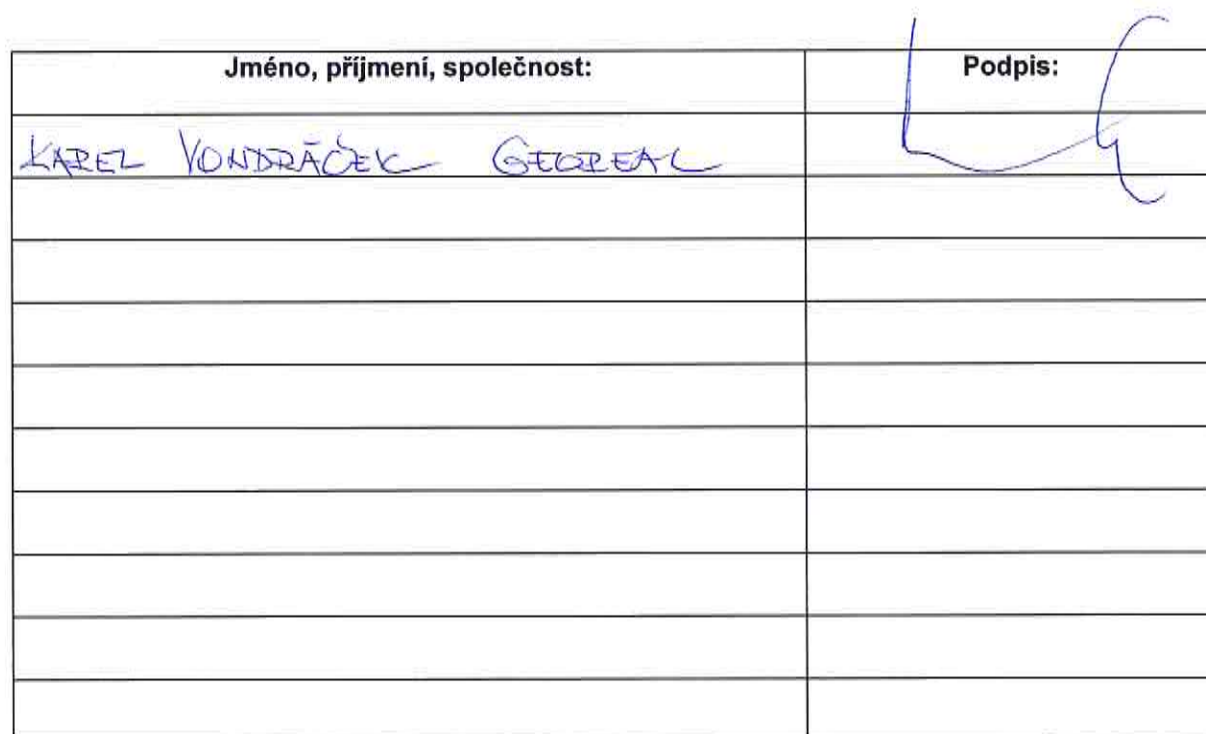 Jméno, příjmení, společnost: Podpis:
KAREL VONDRÁČEK GEOREAL